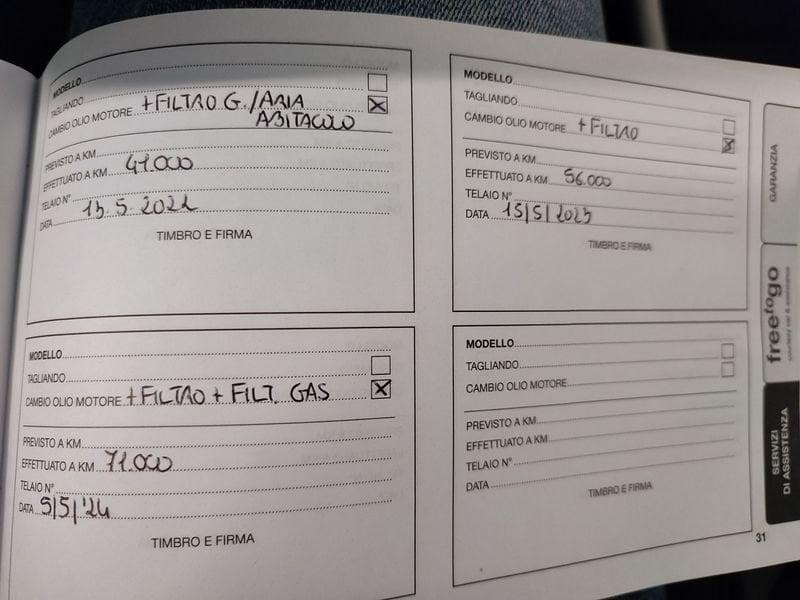 MODELLO
TAGLIANDO
CAMBIO OLIO MOTORE + FILTRO G./ARIA
ABITACOLO
PREVISTO A KM
EFFETTUATO A KM 41.000
TELAIO N°
DATA 13.5.2022
TIMBRO E FIRMA
MODELLO
TAGLIANDO
CAMBIO OLIO MOTORE + FILTRO
PREVISTO A KM
EFFETTUATO A KM 56.000
TELAIO N°
DATA 15/5/2023
TIMBRO E FIRMA
MODELLO
TAGLIANDO
CAMBIO OLIO MOTORE + FILTRO + FILT. GAS
PREVISTO A KM
EFFETTUATO A KM 71.000
TELAIO N°
DATA 5/5/'24
TIMBRO E FIRMA
MODELLO
TAGLIANDO
CAMBIO OLIO MOTORE
PREVISTO A KM
EFFETTUATO A KM
TELAIO N°
DATA
TIMBRO E FIRMA
GARANZIA
freetogo
courtesy car & assistance
SERVIZI
DI ASSISTENZA
31